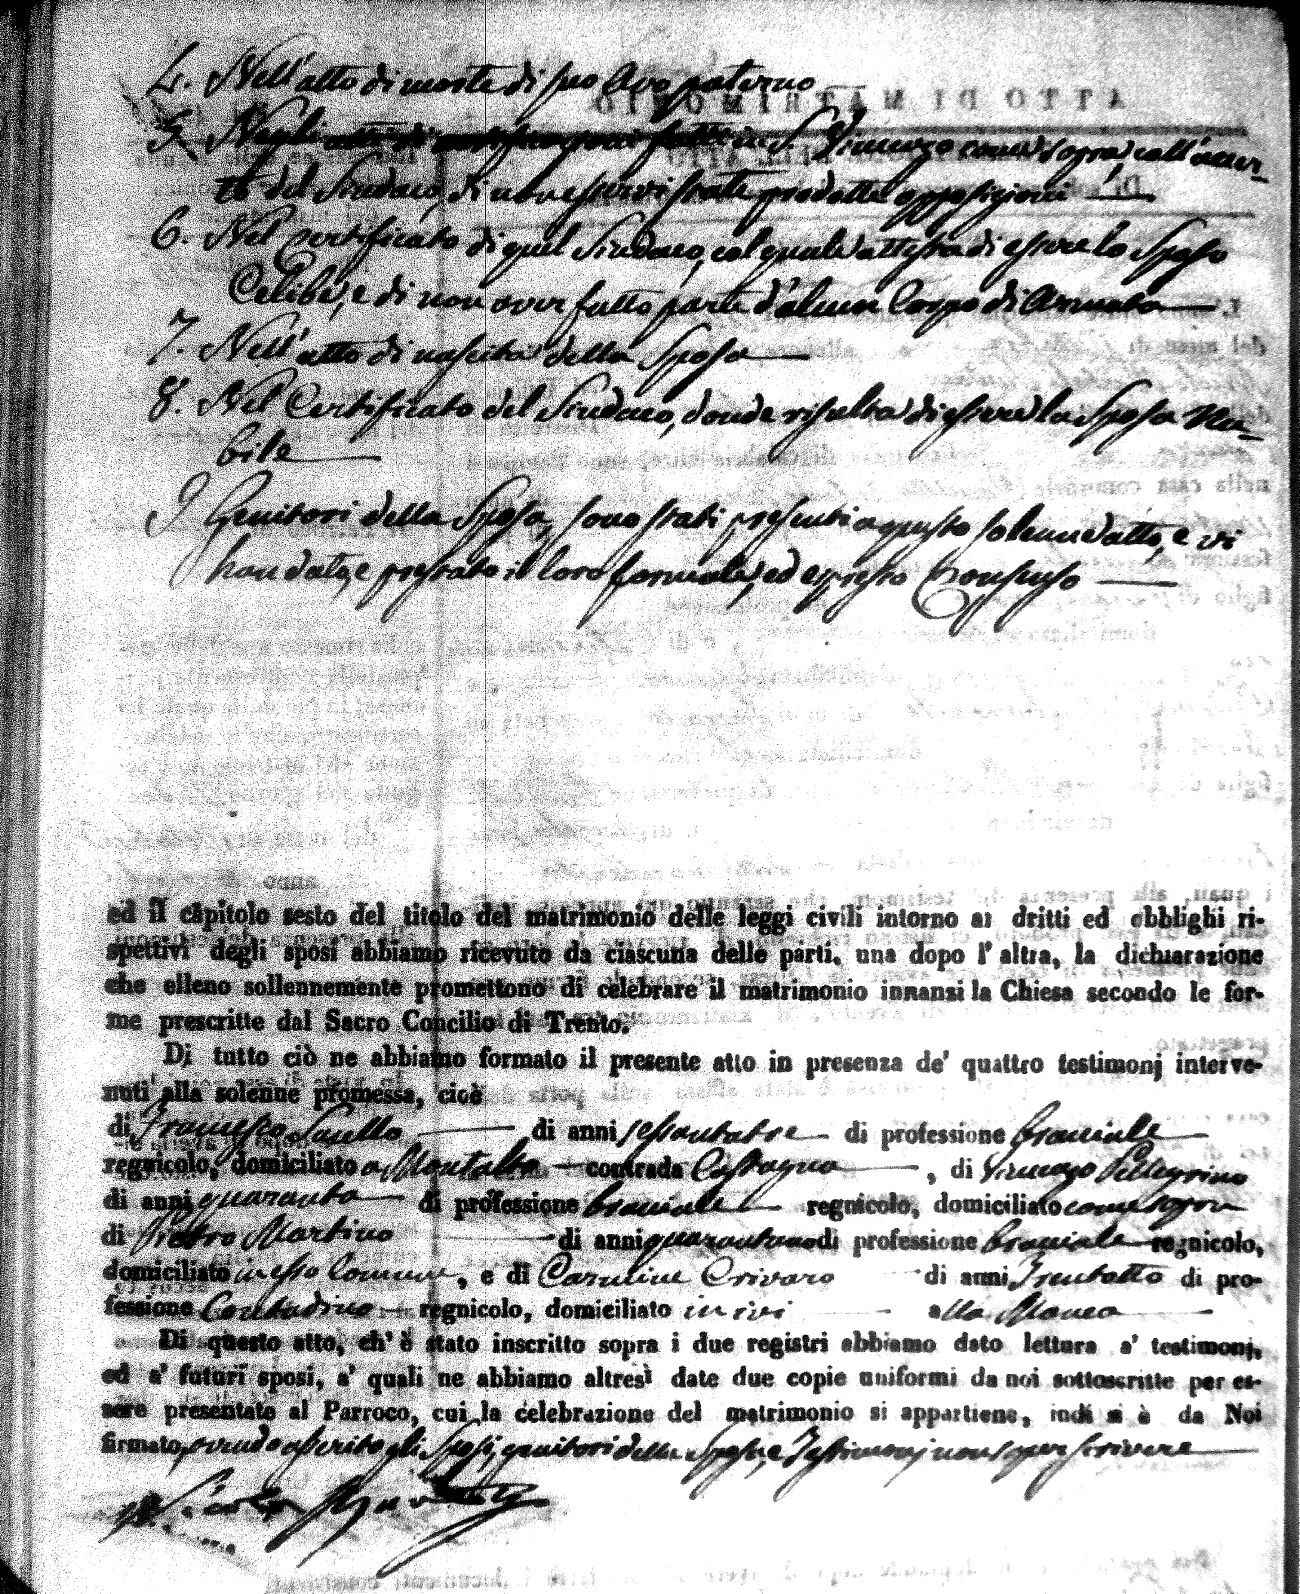 4. Nell'atto di morte di suo Avo paterno
5. Negli atti di notificazioni fatte in S. Vincenzo come sopra, coll'asser-
to del Sindaco, di non esservi state prodotte opposizioni
6. Nel certificato di quel Sindaco, col quale attesta di essere lo Sposo
Celibe, e di non aver fatto parte d'alcun Corpo di Armata
7. Nell'atto di nascita della Sposa
8. Nel Certificato del Sindaco, donde risulta di essere la Sposa Nu-
bile
I Genitori della Sposa, sono stati presenti a questo solenne atto, e vi
han dato, e prestato il loro formale, ed espresso Consenso
ed il capitolo sesto del titolo del matrimonio delle leggi civili intorno ai dritti ed obblighi ri-
spettivi degli sposi abbiamo ricevuto da ciascuna delle parti, una dopo l'altra, la dichiarazione
che elleno sollennemente promettono di celebrare il matrimonio innanzi la Chiesa secondo le for-
me prescritte dal Sacro Concilio di Trento.
Di tutto ciò ne abbiamo formato il presente atto in presenza de' quattro testimonj interve-
nuti alla solenne promessa, cioè
di Francesco Saullo di anni sessantatre di professione bracciale
regnicolo, domiciliato a Montalto contrada Castagna, di Vincenzo Pellegrino
di anni quaranta di professione bracciale regnicolo, domiciliato come sopra
di Pietro Martino di anni di professione bracciale regnicolo,
domiciliato in esso Comune, e di Carmine Crivaro di anni Trentotto di pro-
fessione Contadino regnicolo, domiciliato in ivi alla Manca
Di questo atto, ch' è stato inscritto sopra i due registri abbiamo dato lettura a' testimonj,
ed a' futuri sposi, a' quali ne abbiamo altresì date due copie uniformi da noi sottoscritte per es-
sere presentate al Parroco, cui la celebrazione del matrimonio si appartiene, indi si è da Noi
firmato, avendo asserito gli Sposi, genitori della sposa, e Testimonj non saper scrivere